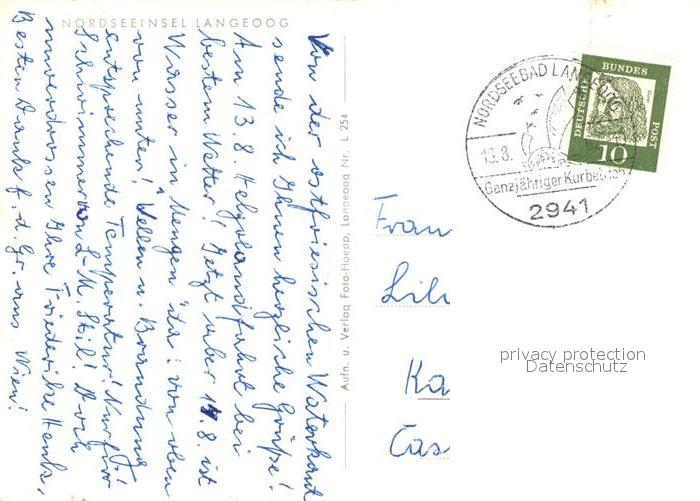 NORDSEEINSEL LANGEOOG
Von der ostfriesischen Waterkant
sende ich Ihnen herzliche Grüße!
Am 13.8. Helgolandfahrt bei
bestem Wetter! Jetzt aber 17.8. ist
Wasser in Mengen da: von oben
von unten! Wellen u. Brandung
entsprechende Temperatur! Nur für
Schwimmer von L-M. Stil! Doch
unverdrossen Ihre Friederike Henk,
Besten Dank f. d. Gr. aus Wien!
Aufn. u. Verlag Foto-Hoepp, Langeoog Nr. L 254
NORDSEEBAD LANGEOOG
19.8.
Ganzjähriger Kurbetrieb
2941
DEUTSCHE BUNDES POST
10
Frau
Lili
Ka
Cas
privacy protection
Datenschutz